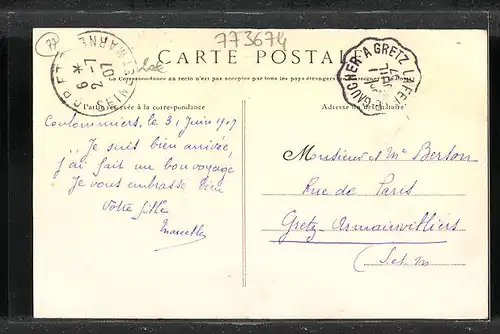 77
773674
CARTE POSTALE
La Correspondance au recto n'est pas acceptée par tous les pays étrangers
GRETZ SEINE-ET-MARNE
6 *
2 -7
07
LA FERTÉ-GAUCHER A GRETZ
Partie réservée à la correspondance
Adresse du destinataire
Coulommiers, le 31 Juin 1907
Je suis bien arrivée,
j'ai fait un bon voyage
Je vous embrasse bien
Votre fille
Marcelle
Monsieur et Me Berson
Rue de Paris
Gretz-Armainvilliers
(S. et M